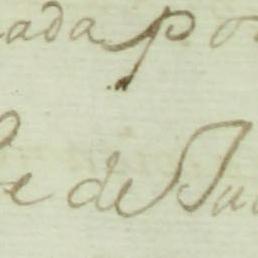 ada po
e de Ju